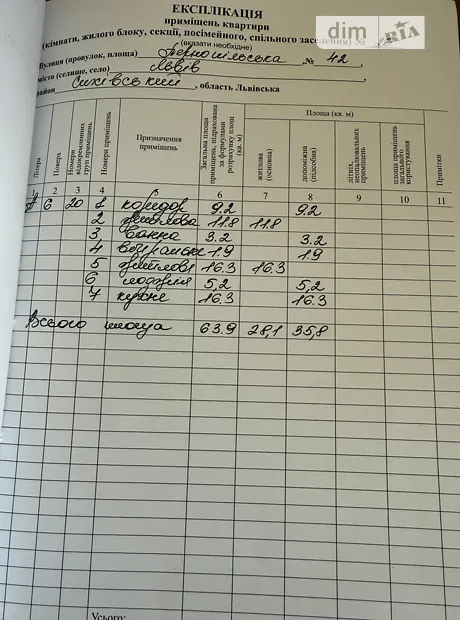 ЕКСПЛІКАЦІЯ
приміщень квартири
(кімнати, жилого блоку, секції, посімейного, спільного заселення) №
(вказати необхідне)
Вулиця (провулок, площа) Тернопільська, № 42,
місто (селище, село) Львів,
район Сихівський, область Львівська
dim RIA
Літера | Поверх | Номери відокремлених груп приміщень | Номери приміщень | Призначення приміщень | Загальна площа приміщень, підрахована за формулами розрахунку площ (кв. м) | Площа (кв. м)
житлова (основна) | допоміжна (підсобна) | літніх, неопалювальних приміщень | площа приміщень загального користування | Примітки
1 2 3 4 5 6 7 8 9 10 11
А 6 20 1 коридор 9.2 9.2
2 житлова 11.8 11.8
3 ванна 3.2 3.2
4 вбиральня 1.9 1.9
5 житлова 16.3 16.3
6 лоджія 5,2 5,2
7 кухне 16.3 16.3
Всього площа 63.9 28,1 35,8
Усього: